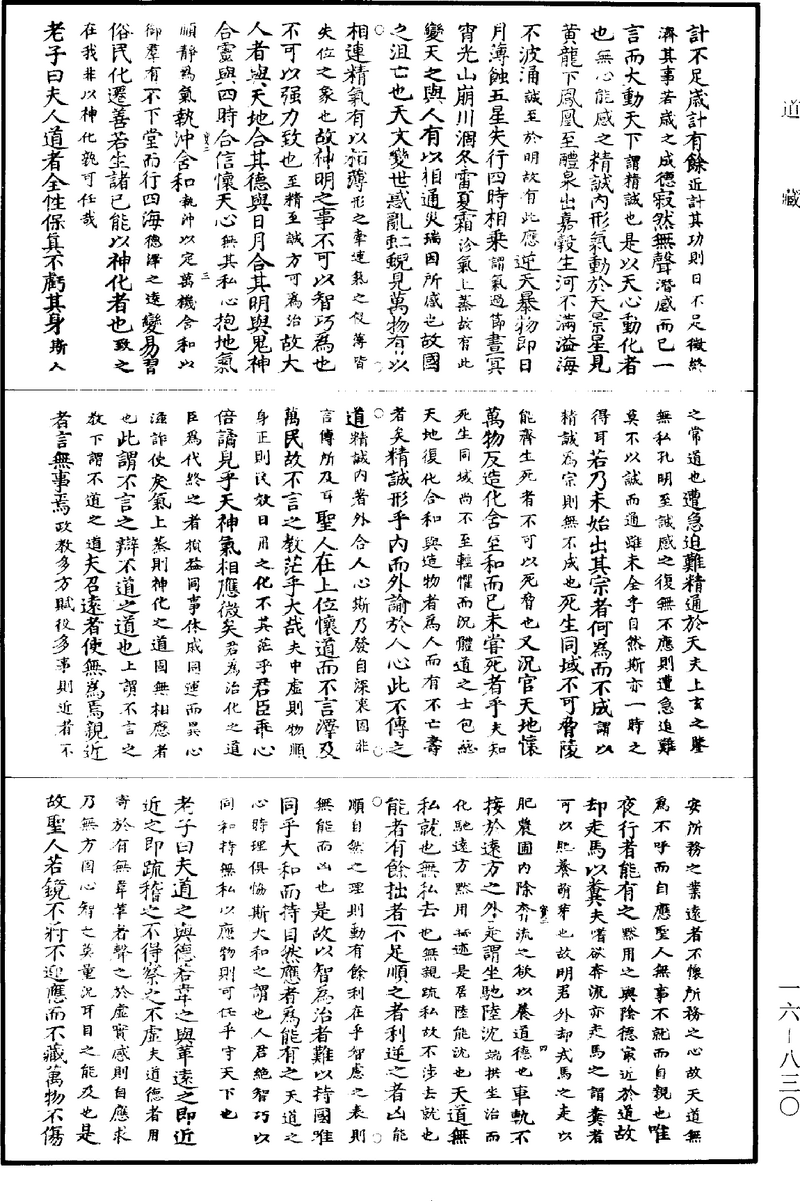 道藏
計不足歲計有餘近計其功則日不足微終
濟其事若歲之成德寂然無聲潛感而已一
言而大動天下謂精誠也是以天心動化者
也無心能感之精誠内形氣動於天景星見
黃龍下鳳凰至醴泉出嘉穀生河不滿溢海
不波涌誠至於明故有此應逆天暴物即日
月薄蝕五星失行四時相乘謂氣過節晝冥
宵光山崩川涸冬雷夏霜沴氣上蒸故有此
變天之與人有以相通災瑞因所感也故國
之沮亡也天文變世惑亂虹蜺見萬物有以
相連精氣有以相薄形之牽連氣之似薄皆
失位之象也故神明之事不可以智巧為也
不可以强力致也至精至誠方可為治故大
人者與天地合其德與日月合其明與鬼神
合靈與四時合信懷天心無其私心抱地氣
順靜為氣執沖含和執沖以定萬機含和以
御羣有不下堂而行四海德澤之遠變易習
俗民化遷善若生諸己能以神化者也致之
在我非以神化孰可任哉
老子曰夫人道者全性保真不虧其身斯人
之常道也遭急迫難精通於天夫上玄之鑒
無私孔明至誠感之復無不應則遭急迫難
莫不以誠而通雖未全乎自然斯亦一時之
得耳若乃未始出其宗者何為而不成謂以
精誠為宗則無不成也死生同域不可脅陵
能齊生死者不可以死脅也又況官天地懷
萬物反造化含至和而已未嘗死者乎夫知
死生同域尚不至輕懼而況體道之士包絡
天地復化合和與造物者為人而有不亡壽
者矣精誠形乎内而外論於人心此不傳之
道精誠内著外合人心斯乃發自深衷固非
言傳所及耳聖人在上位懷道而不言澤及
萬民故不言之教茫乎大哉夫中虛則物順
身正則民效日用之化不其茫乎君臣乖心
倍譎見乎天神氣相應微矣君為治化之道
臣為代終之者損益同事休戚同運而異心
淫詐使矣氣上蒸則神化之道固無相應者
也此謂不言之辯不道之道也上謂不言之
教下謂不道之道夫召遠者使無為焉親近
者言無事焉政教多方賦役多事則近者不
安所務之業遠者不懷所務之心故天道無
為不呼而自應聖人無事不就而自親也唯
夜行者能有之黙用之與陰德冥近於道故
却走馬以糞夫嗜欲奔流亦走馬之謂糞者
可以肥養前草也故明君外却戎馬之走以
肥農圃内除奔流之欲以養道德也車軌不
接於遠方之外是謂坐馳陸沈端拱坐治而
化馳遠方黙用無迹是居陸能沈也天道無
私就也無私去也無親疏私故不涉去就也
能者有餘拙者不足順之者利逆之者凶能
順自然之理則動有餘利在乎智慮之表則
無能而凶也是故以智為治者難以持國唯
同乎大和而待自然應者為能有之天道之
心時理俱恊斯大和之謂也人君絶智巧以
同和持無私以應物則可任乎守天下也
老子曰夫道之與德若韋之與革遠之即近
近之即疏稽之不得察之不虛夫道德者用
寄於有無韋革者聲之於虛實感則自應求
乃無方固心智之莫量況耳目之能及也是
故聖人若鏡不將不迎應而不藏萬物不傷
一六—八三〇